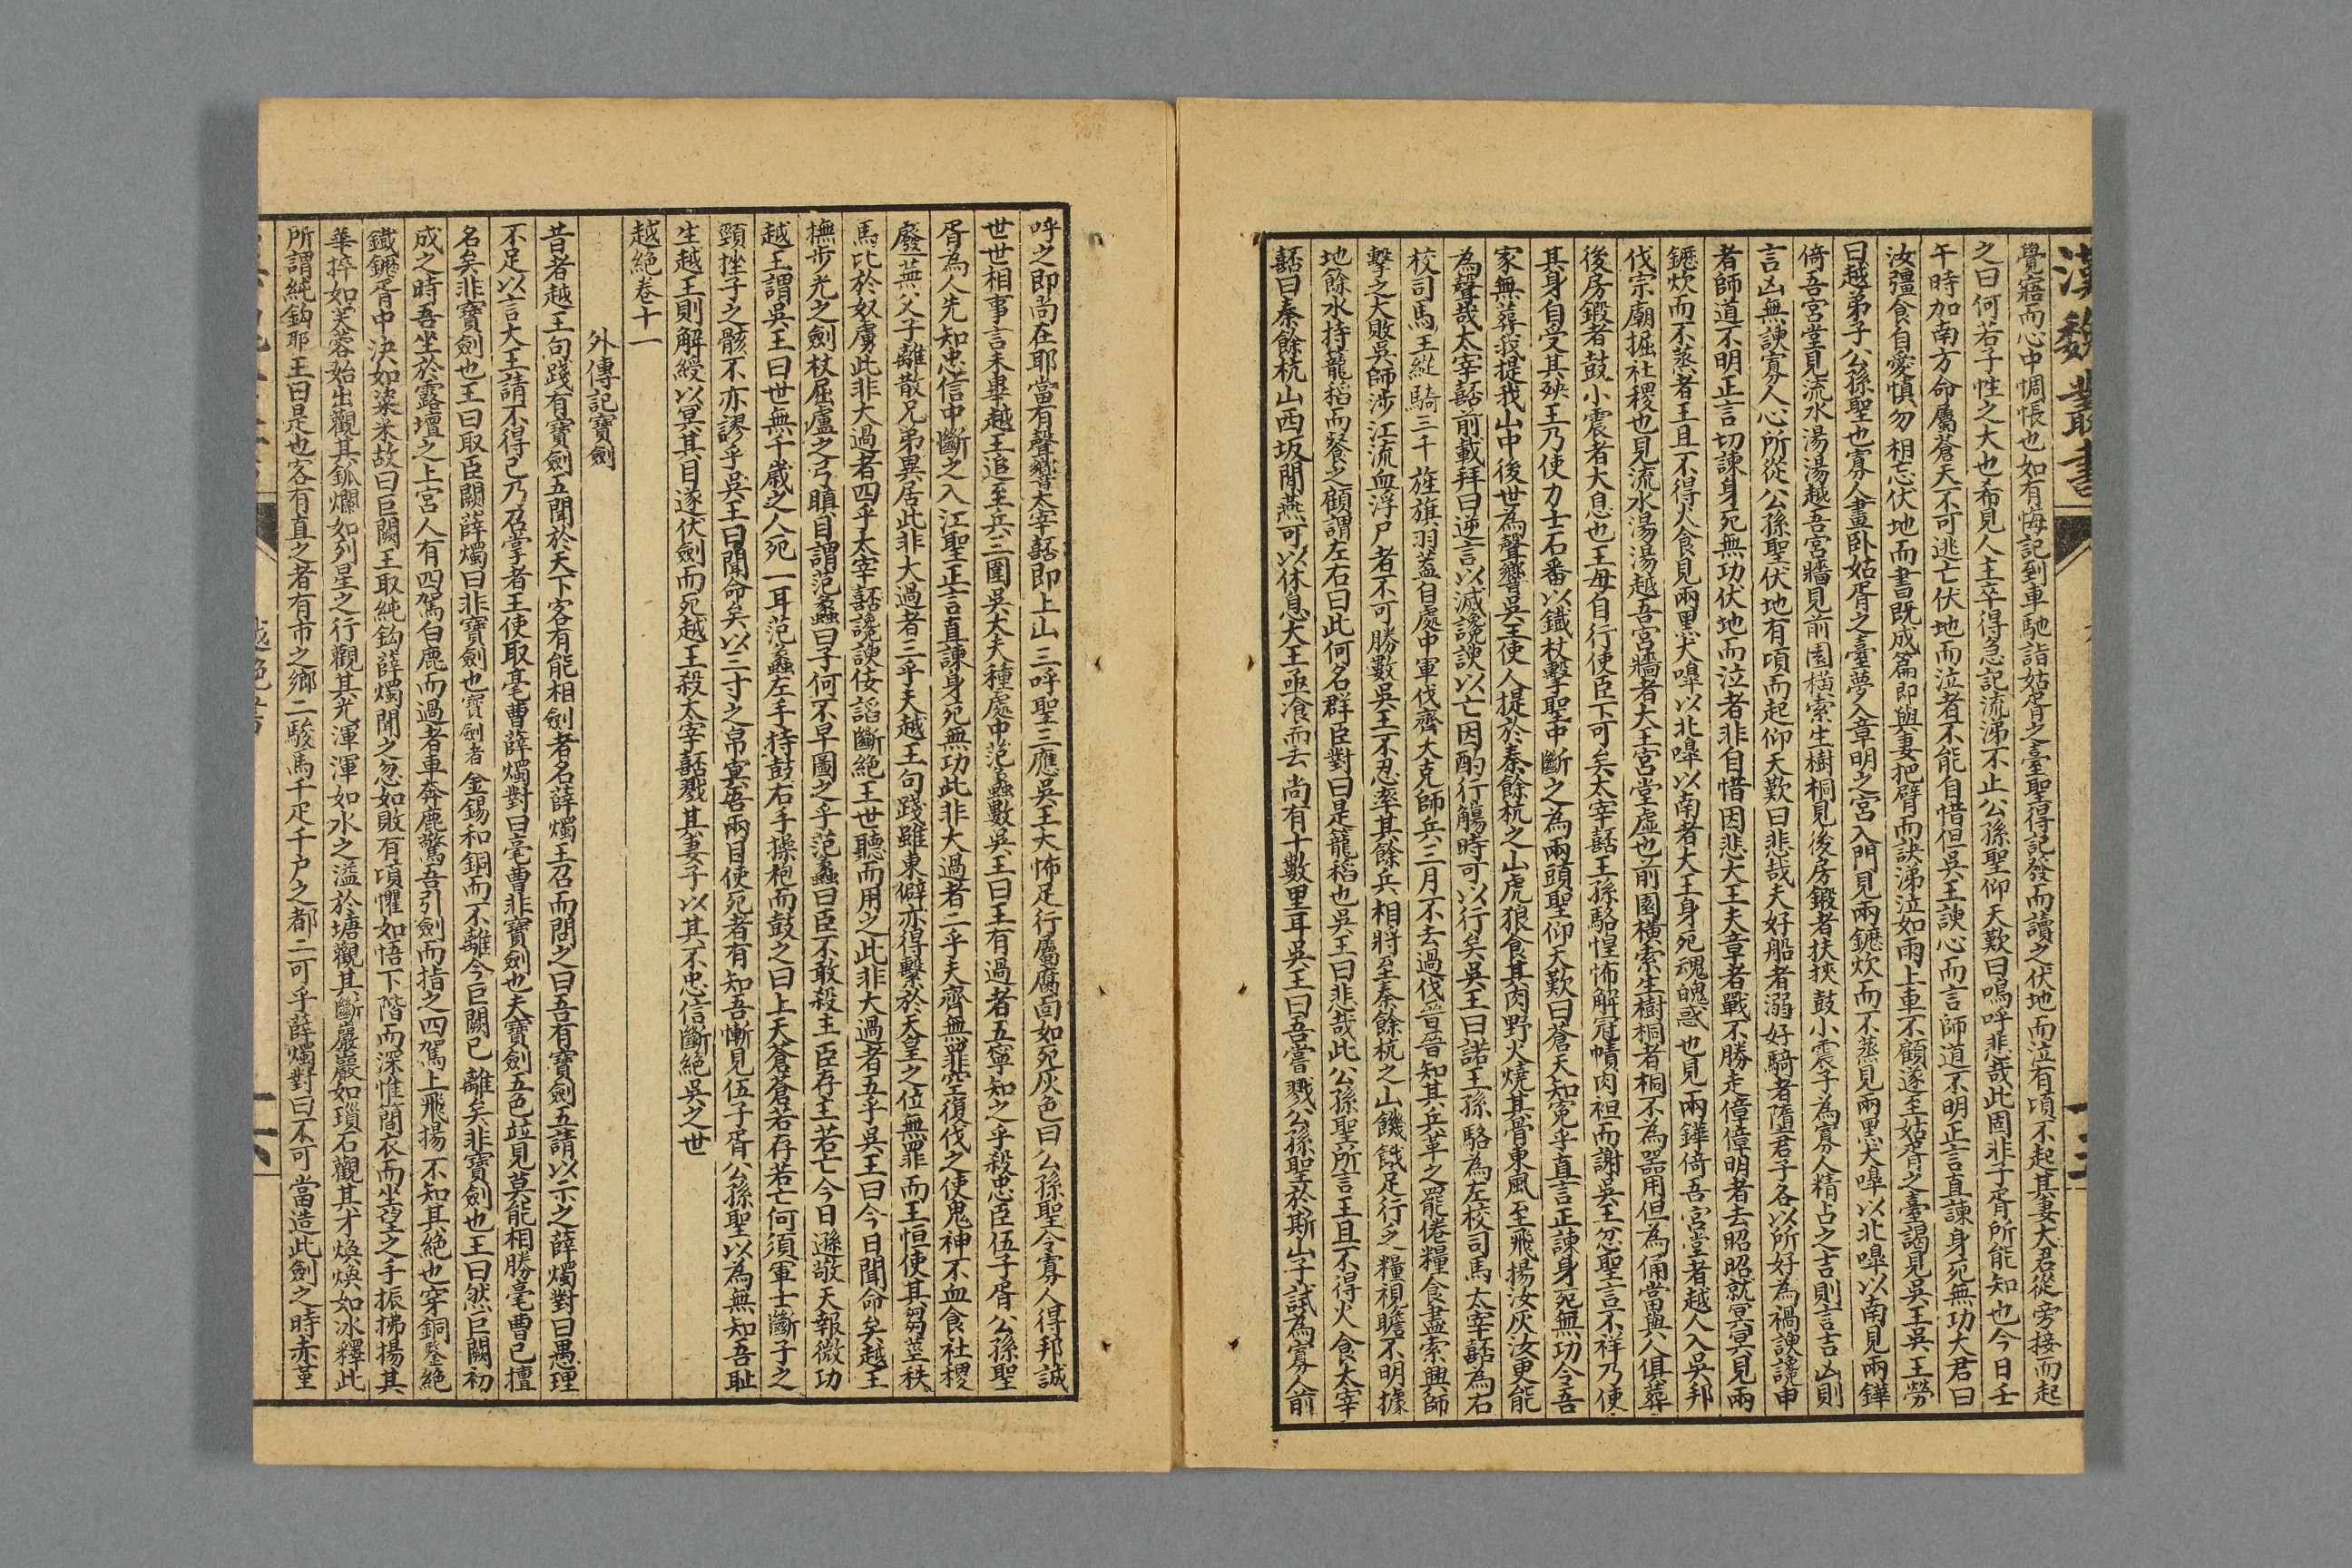 漢魏叢書
覺寤而心中惆悵也如有悔記到車馳詣姑胥之臺聖得記發而讀之伏地而泣有頃不起其妻大君從旁接而起
之曰何若子性之大也希見人主卒得急記流涕不止公孫聖仰天歎曰嗚呼悲哉此固非子胥所能知也今日壬
午時加南方命屬蒼天不可逃亡伏地而泣者不能自惜但吳王諛心而言師道不明正言直諫身死無功大君曰
汝彊食自愛慎勿相忘伏地而書既成篇即與妻把臂而訣涕泣如雨上車不顧遂至姑胥之臺謁見吳王吳王勞
曰越弟子公孫聖也寡人晝卧姑胥之臺夢入章明之宮入門見兩鑩炊而不蒸見兩黑犬嘷以北嘷以南見兩鏵
倚吾宮堂見流水湯湯越吾宮牆見前園橫索生樹桐見後房鍛者扶挾鼓小震子為寡人精占之吉則言吉凶則
言凶無諛寡人心所從公孫聖伏地有頃而起仰天歎曰悲哉夫好船者溺好騎者墮君子各以所好為禍諛讒申
者師道不明正言切諫身死無功伏地而泣者非自惜因悲大王夫章者戰不勝走傽傽明者去昭昭就冥冥見兩
鑩炊而不蒸者王且不得火食見兩黑犬嘷以北嘷以南者大王身死魂魄惑也見兩鏵倚吾宮堂者越人入吳邦
伐宗廟掘社稷也見流水湯湯越吾宮牆者大王宮堂虛也前園橫索生樹桐者桐不為器用但為俑當與人俱葬
後房鍛者鼓小震者大息也王毋自行使臣下可矣太宰嚭王孫駱惶怖解冠幘肉袒而謝吳王忿聖言不祥乃使
其身自受其殃王乃使力士石番以鐵杖擊聖中斷之為兩頭聖仰天歎曰蒼天知冤乎直言正諫身死無功令吾
家無葬我提我山中後世為聲響吳王使人提於秦餘杭之山虎狼食其肉野火燒其骨東風至飛揚汝灰汝更能
為聲哉太宰嚭前載拜曰逆言以滅讒諛以亡因酌行觴時可以行矣吳王曰諾王孫駱為左校司馬太宰嚭為右
校司馬王從騎三千旌旗羽蓋自處中軍伐齊大克師兵三月不去過伐晉晉知其兵革之罷倦糧食盡索興師
擊之大敗吳師涉江流血浮尸者不可勝數吳王不忍率其餘兵相將至秦餘杭之山饑餓足行乏糧視瞻不明據
地餘水持籠稻而餐之顧謂左右曰此何名群臣對曰是籠稻也吳王曰悲哉此公孫聖所言王且不得火食太宰
嚭曰秦餘杭山西坂閒燕可以休息大王亟飡而去尚有十數里耳吳王曰吾嘗戮公孫聖於斯山子試為寡人前
呼之即尚在耶當有聲響太宰嚭即上山三呼聖三應吳王大怖足行屬腐面如死灰色曰公孫聖令寡人得邦誠
世世相事言未畢越王追至兵三圍吳大夫種處中范蠡數吳王曰王有過者五寧知之乎殺忠臣伍子胥公孫聖
胥為人先知忠信中斷之入江聖正言直諫身死無功此非大過者二乎夫齊無罪空復伐之使鬼神不血食社稷
廢蕪父子離散兄弟異居此非大過者三乎夫越王句踐雖東僻亦得繫於天皇之位無罪而王恒使其芻莖秩
馬比於奴虜此非大過者四乎太宰嚭讒諛佞諂斷絕王世聽而用之此非大過者五乎吳王曰今日聞命矣越王
撫步光之劍杖屈盧之弓瞋目謂范蠡曰子何不早圖之乎范蠡曰臣不敢殺主臣存主若亡今日遜敬天報微功
越王謂吳王曰世無千歲之人死一耳范蠡左手持鼓右手操枹而鼓之曰上天蒼蒼若存若亡何須軍士斷子之
頸挫子之骸不亦謬乎吳王曰聞命矣以三寸之帛冥吾兩目使死者有知吾慚見伍子胥公孫聖以為無知吾恥
生越王則解綬以冥其目遂伏劍而死越王殺太宰嚭戮其妻子以其不忠信斷絕吳之世
越絕卷十一
外傳記寶劍
昔者越王句踐有寶劍五聞於天下客有能相劍者名薛燭王召而問之曰吾有寶劍五請以示之薛燭對曰愚理
不足以言大王請不得已乃召掌者王使取毫曹薛燭對曰毫曹非寶劍也夫寶劍五色竝見莫能相勝毫曹已擅
名矣非寶劍也王曰取臣闕薛燭曰非寶劍也寶劍者金錫和銅而不離今巨闕已離矣非寶劍也王曰然巨闕初
成之時吾坐於露壇之上宮人有四駕白鹿而過者車奔鹿驚吾引劍而指之四駕上飛揚不知其絕也穿銅釡絕
鐵鑩胥中決如粢米故曰巨闕王取純鈎薛燭聞之忽如敗有頃懼如悟下階而深惟簡衣而坐望之手振拂揚其
華捽如芙蓉始出觀其釽爛如列星之行觀其光渾渾如水之溢於塘觀其斷巖巖如瑣石觀其才煥煥如冰釋此
所謂純鈎耶王曰是也客有直之者有市之鄉二駿馬千疋千戶之都二可乎薛燭對曰不可當造此劍之時赤堇